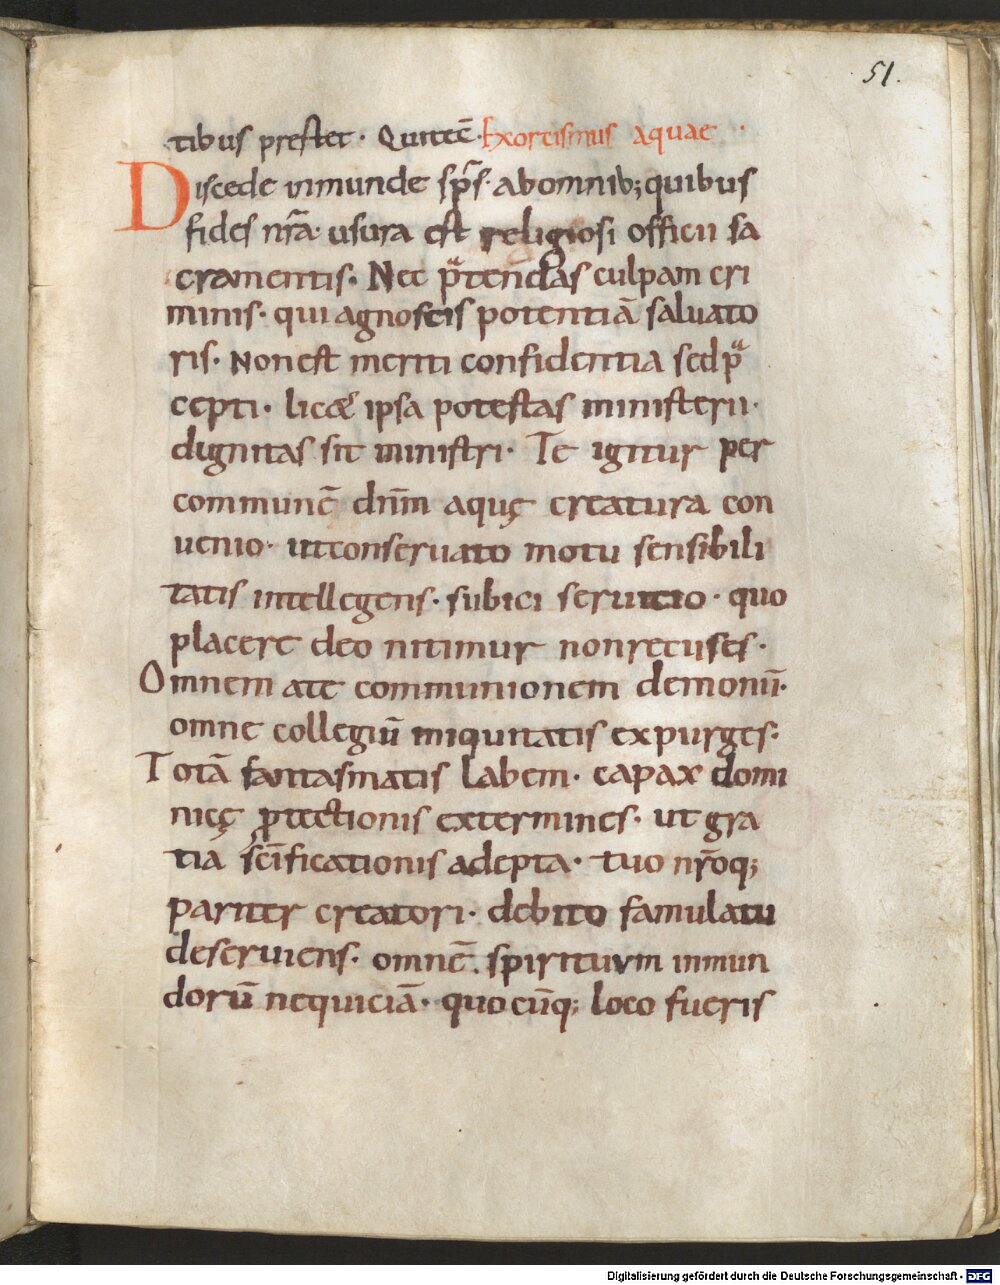 51.
tibus prestet· Qui tec̄· Exorcismus aquae
Discede inmunde sp̄s· ab omnib; quibus
fides nr̄a· usura est religiosi officii sa
cramentis· Nec p̃tendas culpam cri
minis· qui agnoscis potentiā saluato
ris· Non est meriti confidentia sed p̃
cepti· licet ipsa potestas ministerii·
dignitas sit ministri· Te igitur per
communē dn̄m aquę creatura con
uenio· ut conseruato motu sensibili
tatis intellegens· subici seruitio· quo
placere deo nitimur non recuses·
Omnem a te communionem demonū·
omne collegiū iniquitatis expurges·
Totā fantasmatis labem· capax domi
nicę ꝓtectionis extermines· ut gra
tiā sc̄ificationis adepta· tuo nr̄oq;
pariter creatori· debito famulatu
deseruiens· omnē spirituum inmun
dorū nequiciā· quocūq; loco fueris
Digitalisierung gefördert durch die Deutsche Forschungsgemeinschaft - DFG